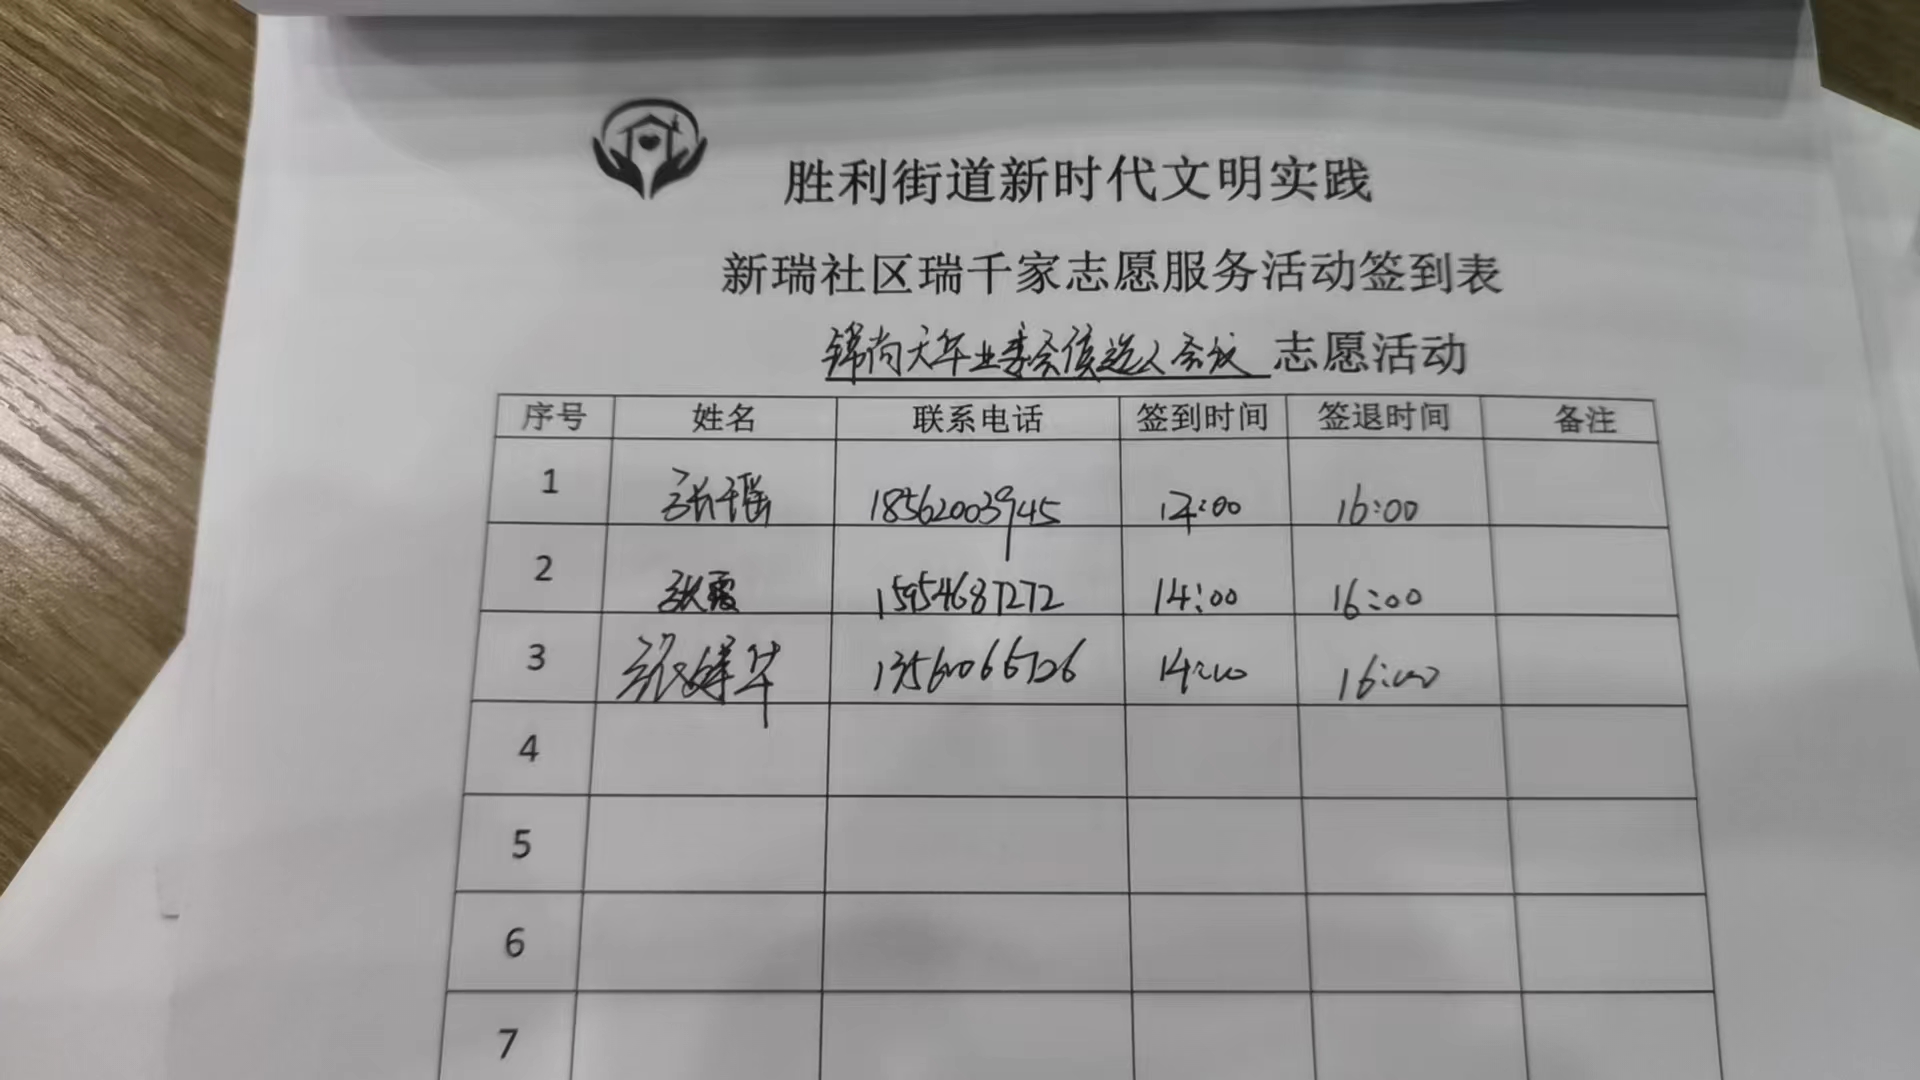 胜利街道新时代文明实践
新瑞社区瑞千家志愿服务活动签到表
锦尚天年业委会候选人会议 志愿活动
序号 姓名 联系电话 签到时间 签退时间 备注
1 张千瑶 18562003945 14:00 16:00
2 张霞 15954687272 14:00 16:00
3 张 华 14:00 16:00
4
5
6
7